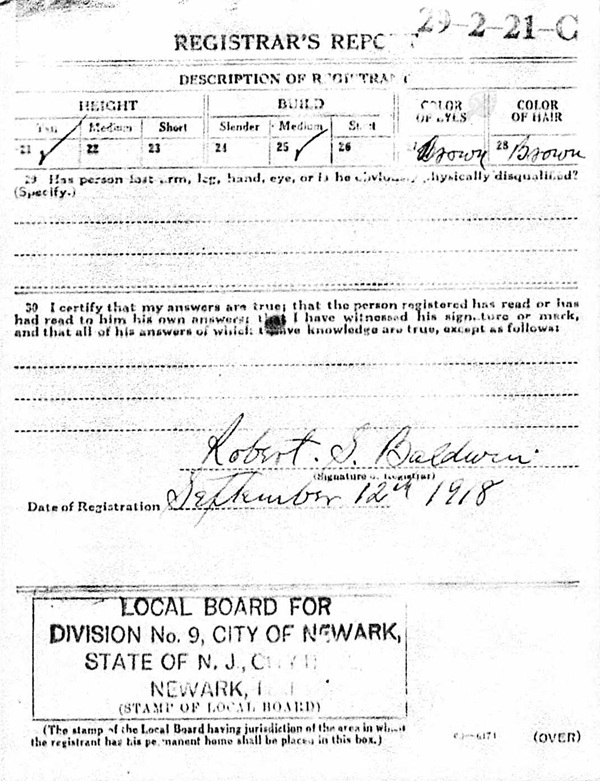 29-2-21-C
REGISTRAR'S REPORT
DESCRIPTION OF REGISTRANT
HEIGHT BUILD COLOR OF EYES COLOR OF HAIR
Tall Medium Short Slender Medium Stout
21 ✓ 22 23 24 25 ✓ 26 Brown 28 Brown
29 Has person lost arm, leg, hand, eye, or is he obviously physically disqualified?
(Specify.)
30 I certify that my answers are true; that the person registered has read or has
had read to him his own answers; that I have witnessed his signature or mark,
and that all of his answers of which I have knowledge are true, except as follows:
Robert. S. Baldwin
(Signature of Registrar)
Date of Registration September 12th 1918
LOCAL BOARD FOR
DIVISION No. 9, CITY OF NEWARK,
STATE OF N. J.,
NEWARK,
(STAMP OF LOCAL BOARD)
(The stamp of the Local Board having jurisdiction of the area in which
the registrant has his permanent home shall be placed in this box.)
(OVER)